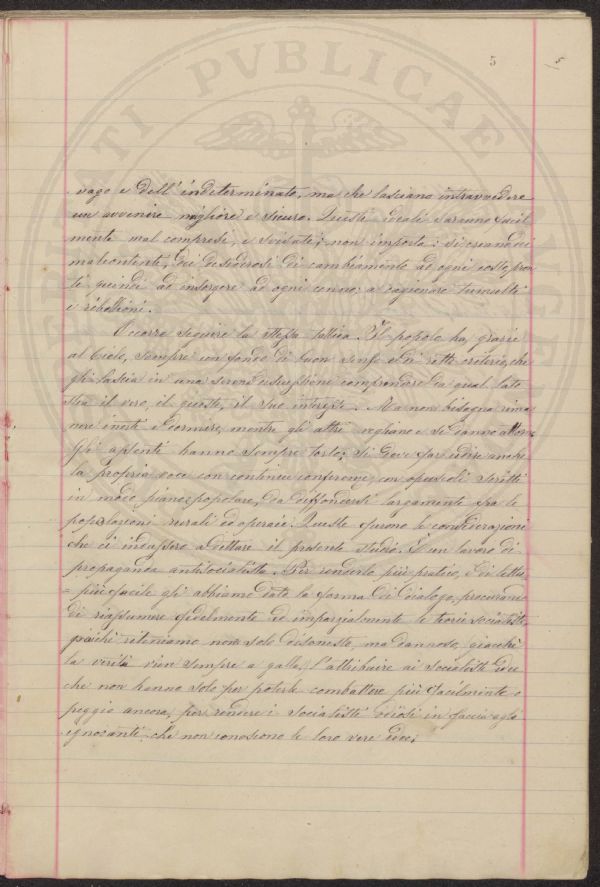 5 5
vago e dell'indeterminato, ma che lasciano intravvedere
un avvenire migliore e sicuro. Questi ideali saranno facil
mente mal compresi, e svisati; non importa; si creano dei
malcontenti, dei desiderosi di cambiamento ad ogni costo, pron
ti quindi ad insorgere ad ogni cenno, a cagionare tumulti
e ribellioni.
Occorre seguire la stessa tattica. Il popolo ha, grazie
al Cielo, sempre un fondo di buon senso e di retto criterio, che
gli lascia in una serena discussione comprendere da qual lato
stia il vero, il giusto, il suo interesse. Ma non bisogna rima
nere inerti e dormire, mentre gli altri vegliano e si danno attorno.
Gli assenti hanno sempre torto; si deve fare udire anche
la propria voce con continue conferenze, con opuscoli scritti
in modo piano e popolare, da diffondersi largamente fra le
popolazioni rurali ed operaie. Queste furono le considerazioni
che ci indussero a dettare il presente studio. È un lavoro di
propaganda antisocialista. Per renderlo più pratico, e di lettu
= più facile gli abbiamo dato la forma di dialogo, procurando
di riassumere fedelmente ed imparzialmente le teorie socialiste,
poichè riteniamo non solo disonesto, ma dannoso, giacchè
la verità vien sempre a galla, l'attribuire ai socialisti idee
che non hanno solo per poterle combattere più facilmente o
peggio ancora, per rendere i socialisti odiosi in faccia agli
ignoranti, che non conoscono le loro vere idee.
PVBLICAE